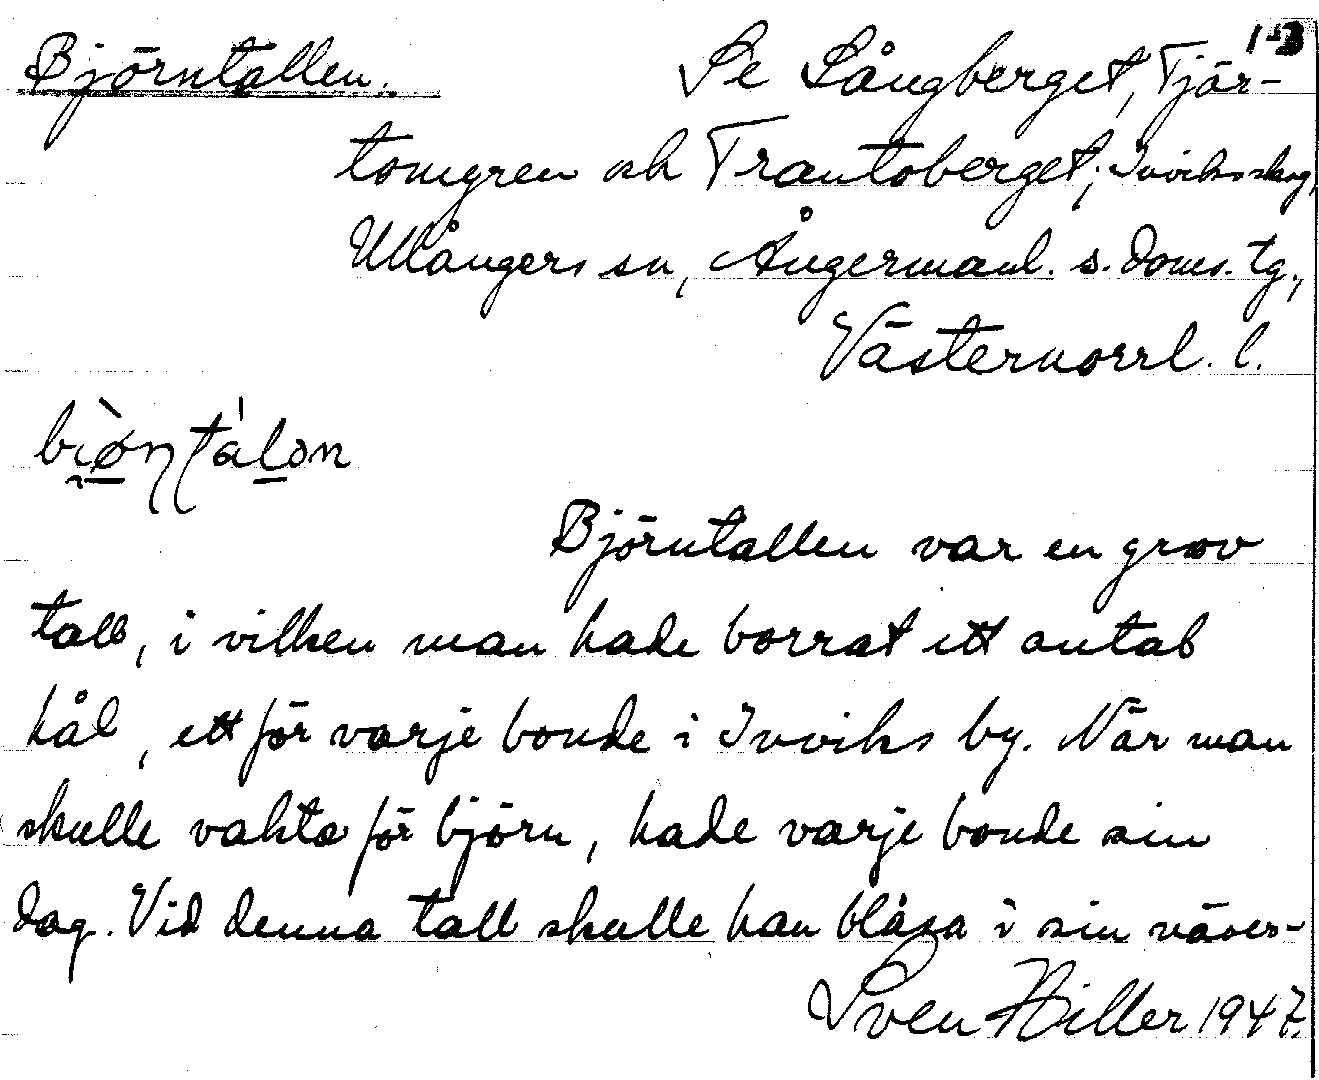 Björntallen.
Se Långberget, Tjär-
tomgren och Trantoberget, Inviksskog,
Ullångers sn, Ångermanl. s. doms. tg.,
Västernorrl. l.
Björntallen var en grov
tall, i vilken man hade borrat ett antal
hål, ett för varje bonde i Inviks by. När man
skulle vakta för björn, hade varje bonde sin
dag. Vid denna tall skulle han blåsa i sin näver-
Sven Hiller 1947.